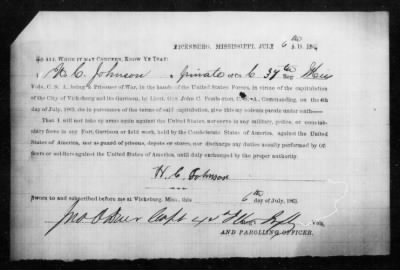 VICKSBURG, MISSISSIPPI, JULY 6th A. D. 1863.
TO ALL WHOM IT MAY CONCERN, KNOW YE THAT:
I H. C. Johnson a private of Co. C 37th Reg't
Vols., C. S. A., being a Prisoner of War, in the hands of the United States Forces, in virtue of the capitulation
of the City of Vicksburg and its Garrison, by Lieut. Gen. John C. Pemberton, C. S. A., Commanding, on the 4th
day of July, 1863, do in pursuance of the terms of said capitulation, give this my solemn parole under oath—
That I will not take up arms again against the United States, nor serve in any military, police, or constabulary force in any Fort, Garrison or field work, held by the Confederate States of America, against the United
States of America, nor as guard of prisons, depots or stores, nor discharge any duties usually performed by Officers or soldiers against the United States of America, until duly exchanged by the proper authority.
H. C. Johnson
Sworn to and subscribed before me at Vicksburg, Miss., this 6th day of July, 1863.
Capt Vols.
AND PAROLLING OFFICER.